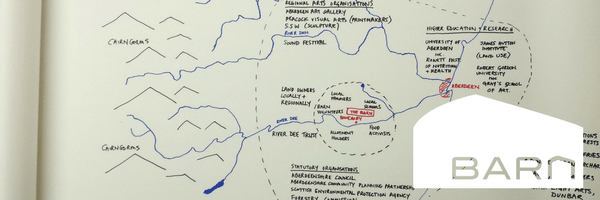 REGIONAL ARTS ORGANISATIONS
ABERDEEN ART GALLERY
PEACOCK VISUAL ARTS (PRINTMAKERS)
S.S.W (SCULPTURE)
RIVER DON
SOUND FESTIVAL
CAIRNGORMS
CAIRNGORMS
HIGHER EDUCATION + RESEARCH
UNIVERSITY OF
ABERDEEN
INC.
ROWETT INST
OF NUTRITION
+ HEALTH
JAMES HUTTON
INSTITUTE
(LAND USE)
ROBERT GORDON
UNIVERSITY
INC
GRAY'S SCHOOL
OF ART.
ABERDEEN
LAND OWNERS
LOCALLY +
REGIONALLY
LOCAL
FARMERS
LOCAL
SCHOOLS
BARN
VOLUNTEERS
THE BARN
BANCHORY
RIVER DEE
RIVER DEE TRUST
ALLOTMENT
HOLDERS
FOOD
ACTIVISTS
STATUTORY ORGANISATIONS
ABERDEENSHIRE COUNCIL
ABERDEENSHIRE COMMUNITY PLANNING PARTNERSHIP
SCOTTISH ENVIRONMENTAL PROTECTION AGENCY
FORESTRY COMMISSION
BARN
ARTS,
DUNBAR